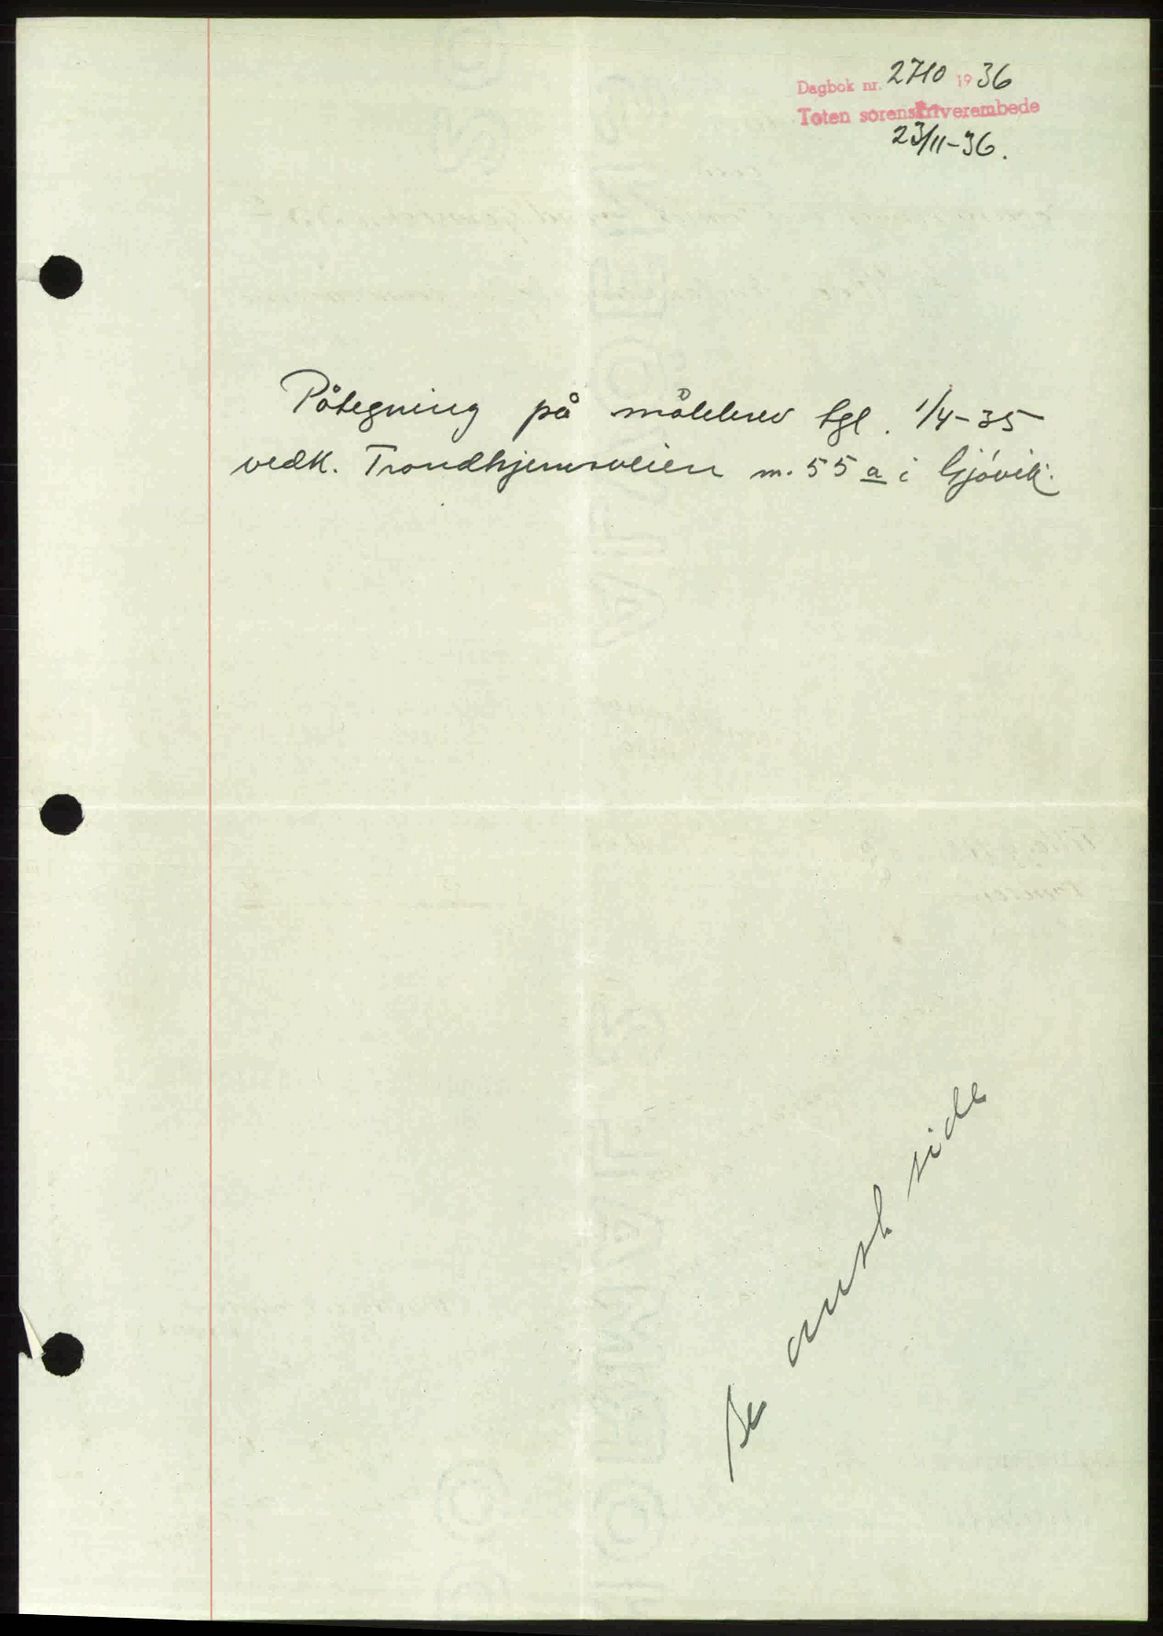 Dagbok nr. 2710 1936
Toten sorenskriverembede
23/11-36.
Påtegning på målebrev tgl. 1/4-35
vedk. Trondhjemsveien nr. 55 a i Gjøvik.
Se motst side